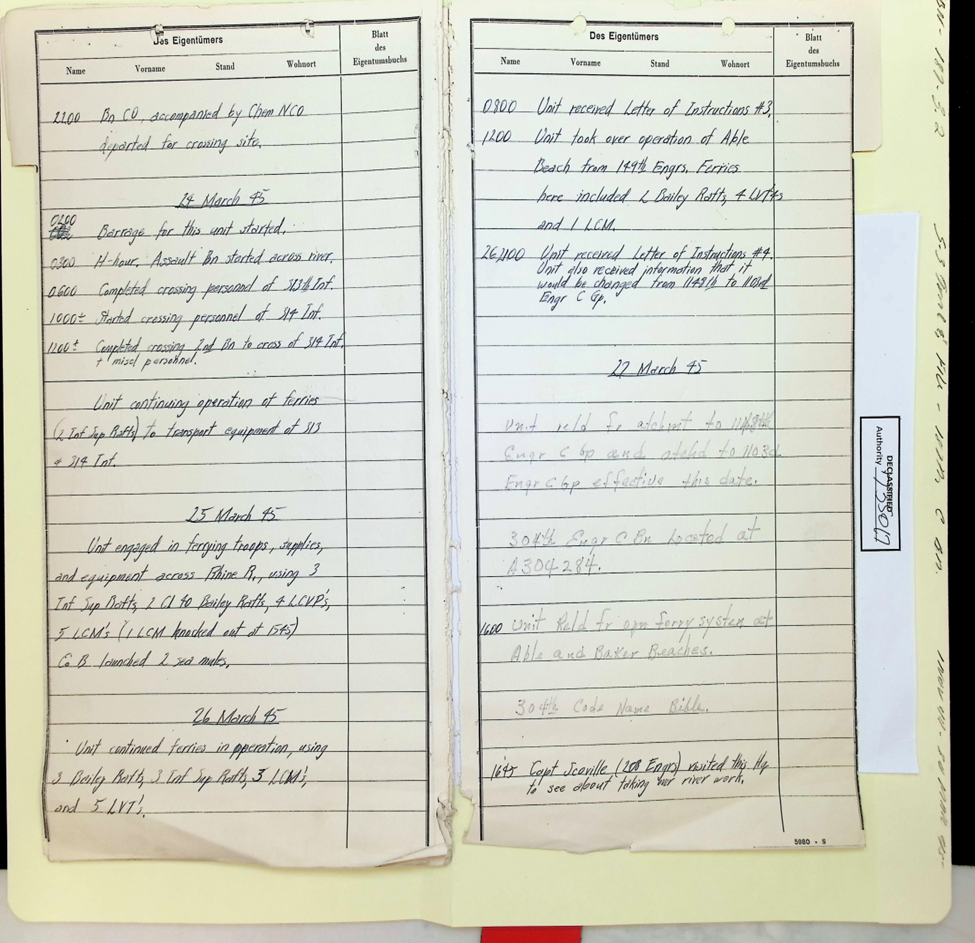 Des Eigentümers
Blatt
des
Eigentumsbuchs
Name Vorname Stand Wohnort
2200 Bn CO, accompanied by Chem NCO
departed for crossing site.
24 March 45
0200
Barrage for this unit started.
0300 H-hour. Assault Bn started across river.
0600 Completed crossing personnel of 313th Inf.
1000± Started crossing personnel of 314 Inf.
1200± Completed crossing 2nd Bn to cross of 314 Inf.
+ miscl personnel.
Unit continuing operation of ferries
(2 Inf Sup Rafts) to transport equipment of 313
+ 314 Inf.
25 March 45
Unit engaged in ferrying troops, supplies,
and equipment across Rhine R., using 3
Inf Sup Rafts, 2 Cl 40 Bailey Rafts, 4 LCVP's,
5 LCM's (1 LCM knocked out at 1545)
Co B launched 2 sea mules.
26 March 45
Unit continued ferries in operation, using
3 Bailey Rafts, 3 Inf Sup Rafts, 3 LCM's,
and 5 LVT's.
Des Eigentümers
Blatt
des
Eigentumsbuchs
Name Vorname Stand Wohnort
0800 Unit received Letter of Instructions #3.
1200 Unit took over operation of Able
Beach from 149th Engrs. Ferries
here included 2 Bailey Rafts, 4 LVT4s
and 1 LCM.
262100 Unit received Letter of Instructions #4.
Unit also received information that it
would be changed from 1148th to 1103d
Engr C Gp.
27 March 45
Unit reld fr atchmt to 1148th
Engr C Gp and atchd to 1103d
Engr C Gp effective this date.
304th Engr C Bn Located at
A304-284.
1600 Unit Reld fr opn ferry system at
Able and Baker Beaches.
304th Code Name Bible.
1645 Capt Scoville (208 Engrs) visited this Hq
to see about taking over river work.
5980 - S
DECLASSIFIED
Authority